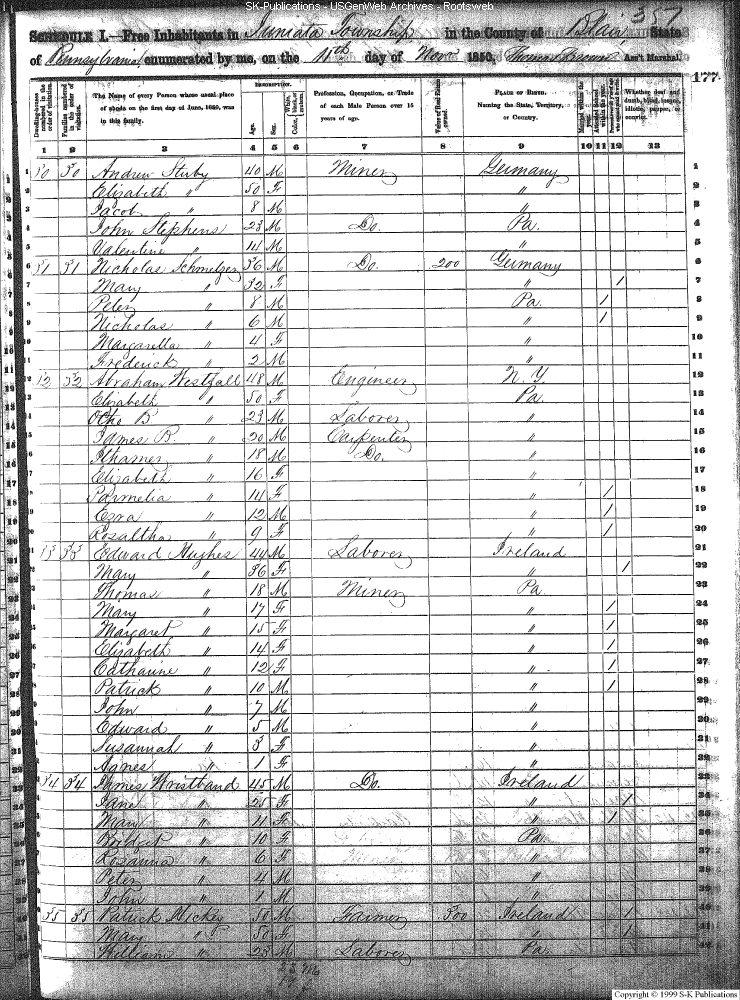 SK-Publications - USGenWeb Archives - Rootsweb
357
SCHEDULE I.—Free Inhabitants in Juniata Township in the County of Blair State
of Pennsylvania enumerated by me, on the 11th day of Novr 1850. Thomas Brown Ass't Marshal.
177
DESCRIPTION.
Dwelling-houses numbered in the order of visitation.
Families numbered in the order of visitation.
The Name of every Person whose usual place of abode on the first day of June, 1850, was in this family.
Age.
Sex.
Color, White, black, or mulatto.
Profession, Occupation, or Trade of each Male Person over 15 years of age.
Value of Real Estate owned.
PLACE OF BIRTH. Naming the State, Territory, or Country.
Married within the year.
Attended School within the year.
Whether deaf and dumb, blind, insane, idiotic, pauper, or convict.
1 2 3 4 5 6 7 8 9 10 11 12 13
1 50 50 Andrew 40 M Miner Germany 1
2 Elizabeth " 50 F " 2
3 Jacob " 8 M " 3
4 John Stephens 23 M Do. Pa. 4
5 Valentine " 14 M " 5
6 51 51 Nicholas Schmelzer 36 M Do. 200 Germany 6
7 Mary " 32 F " / 7
8 Peter " 8 M Pa. / 8
9 Nicholas " 6 M " / 9
10 Margaretta " 4 F " 10
11 Frederick " 2 M " 11
12 52 52 Abraham Westfall 48 M Engineer N.Y 12
13 Elizabeth " 50 F Pa. 13
14 Otho B " 23 M Laborer " 14
15 James B. " 20 M Carpenter " 15
16 " 18 M Do. " 16
17 Elizabeth " 16 F " 17
18 Parmelia " 14 F " / 18
19 Ezra " 12 M " / 19
20 Rosaltha " 9 F " / 20
21 53 53 Edward Hughes 44 M Laborer Ireland 21
22 Mary " 36 F " / 22
23 Thomas " 18 M Miner Pa. 23
24 Mary " 17 F " / 24
25 Margaret " 15 F " / 25
26 Elizabeth " 14 F " / 26
27 Catharine " 12 F " / 27
28 Patrick " 10 M " / 28
29 John " 7 M " 29
30 Edward " 5 M " 30
31 Susannah " 3 F " 31
32 Agnes " 1 F " 32
33 54 54 James Wristband 45 M Do. Ireland 33
34 Jane " 25 F " / 34
35 Mary " 11 F " / 35
36 Bridget " 10 F Pa. 36
37 Rosanna " 6 F " 37
38 Peter " 4 M " 38
39 John " 1 M " 39
40 55 55 Patrick Hickey 50 M Farmer 500 Ireland / 40
41 Mary " 50 F " / 41
42 William " 25 M Laborer Pa. 42
Copyright © 1999 S-K Publications